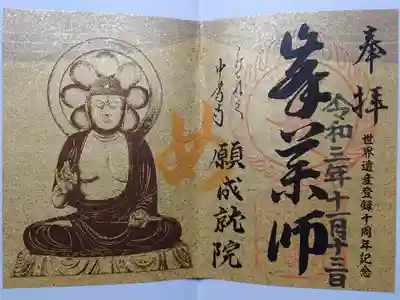 奉拝
世界遺産登録十周年記念
令和三年十一月十三日
峯薬師
中尊寺
願成就院
め